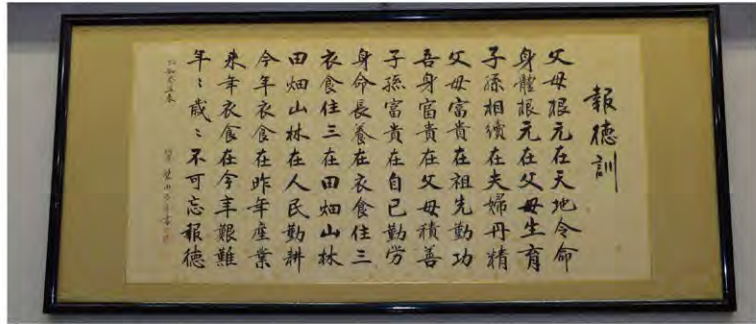 報徳訓
父母根元在天地令命
身體根元在父母生育
子孫相續在夫婦丹精
父母富貴在祖先勤功
吾身富貴在父母積善
子孫富貴在自己勤労
身命長養在衣食住三
衣食住三在田畑山林
田畑山林在人民勤耕
今年衣食在昨年產業
来年衣食在今年艱難
年〻歳〻不可忘報徳